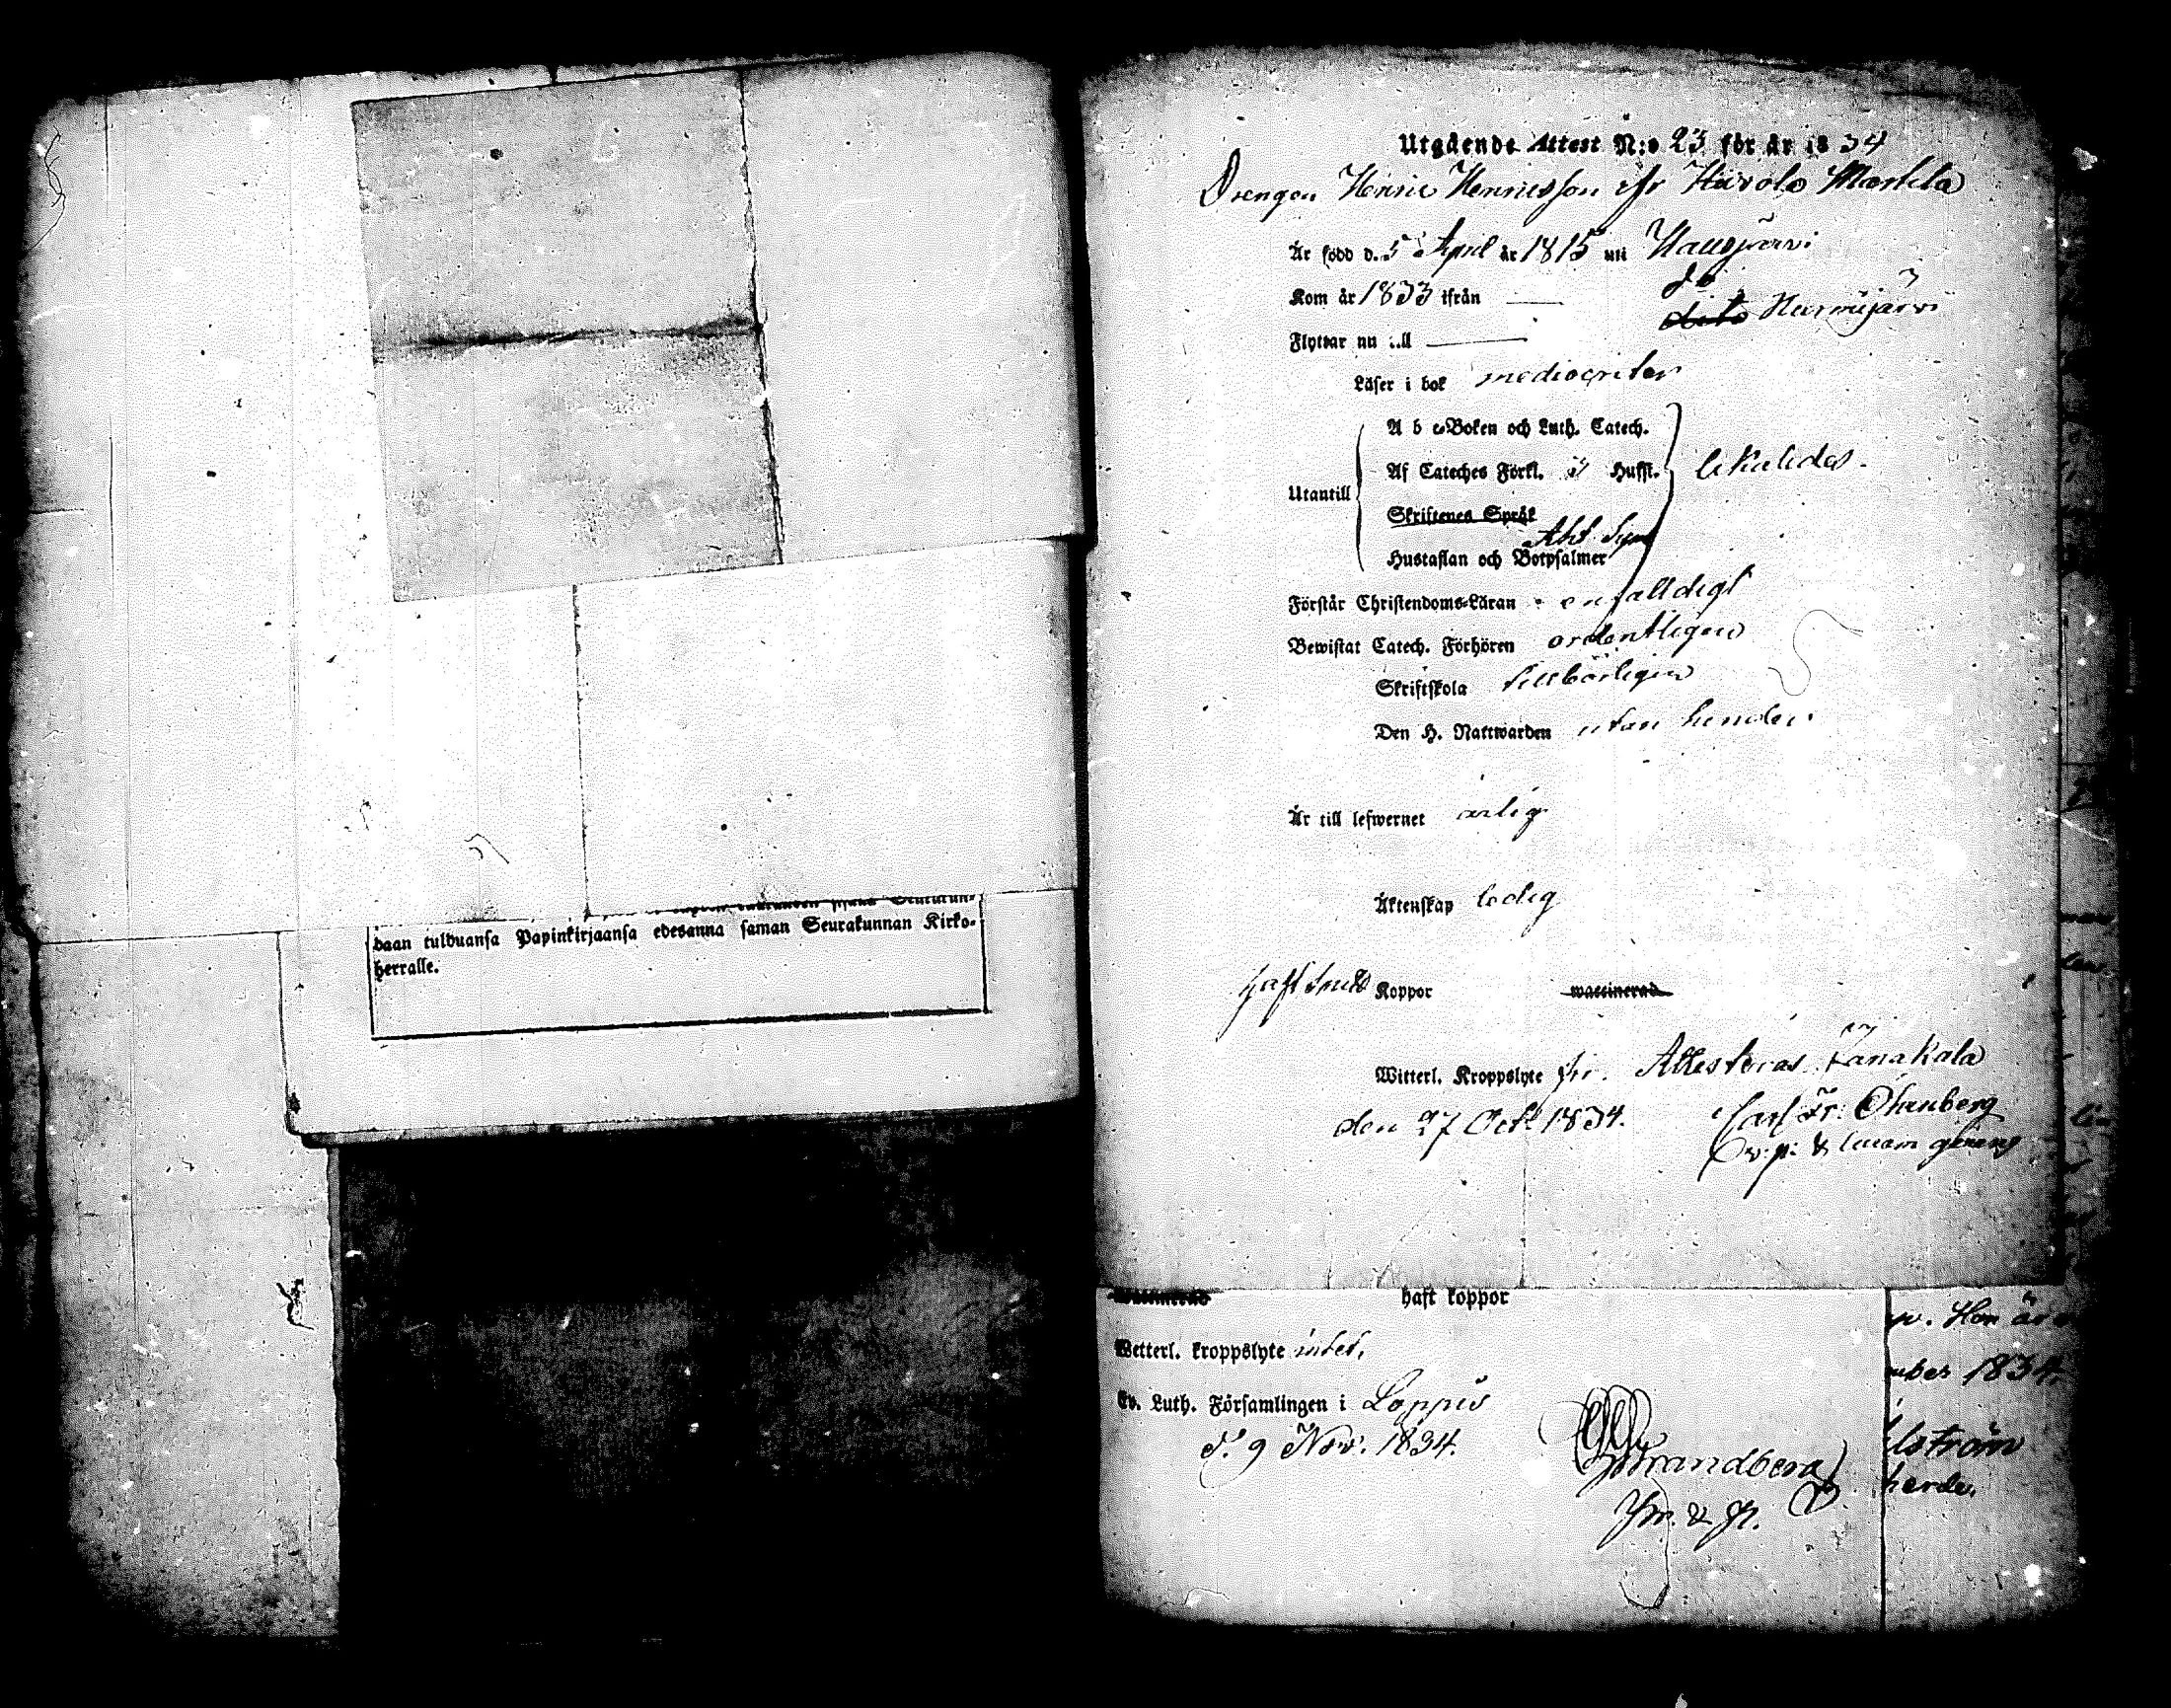 daan tulduansa Papinkirjaansa edesanna saman Seurakunnan Kirko-
herralle.
Utgående Attest N:o 23 för år 1834
Drengen Henric Henricsson ifr
Är född d. 5 April år 1815 uti Hausjärvi
do
Kom år 1833 ifrån —
dito Nurmijärvi
Flyttar nu till —
Läser i bok mediocriter
A b c-Boken och Luth. Catech.
Af Cateches Förkl. Hufst.
likaledes.
Utantill
Skriftenes Språk
Ath. Sym
Hustaflan och Botpsalmer
Förstår Christendoms-Läran enfalldigt
Bewistat Catech. Förhören ordentligen
Skriftskola tillbörligen
Den H. Nattwarden utan hinder
Är till lefwernet ärlig
Äktenskap ledig
haft Koppor waccinerad
Witterl. Kroppslyte Attesteras Janakala
den 27 Oct. 1834. Carl Fr.
v. p.
waccinerad haft koppor
Wetterl. kroppslyte intet,
Ev. Luth. Församlingen i Loppis
d. 9 Nov. 1834.
Strandberg
w. Hon är
mber 1834.
lström
herde.